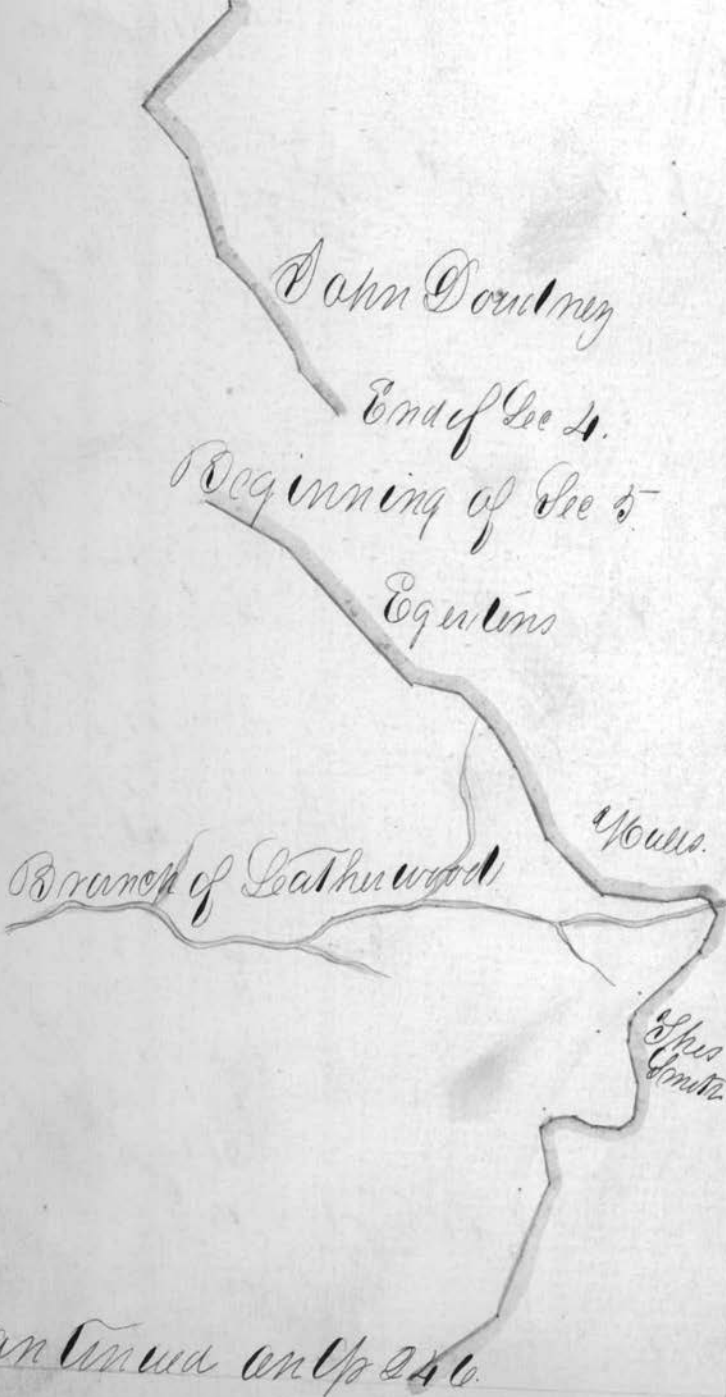 John Doudney
End of Sec 4.
Beginning of Sec 5
Egertons
Halls.
Branch of Leatherwood
Thos
Smith
ontinued on p 246